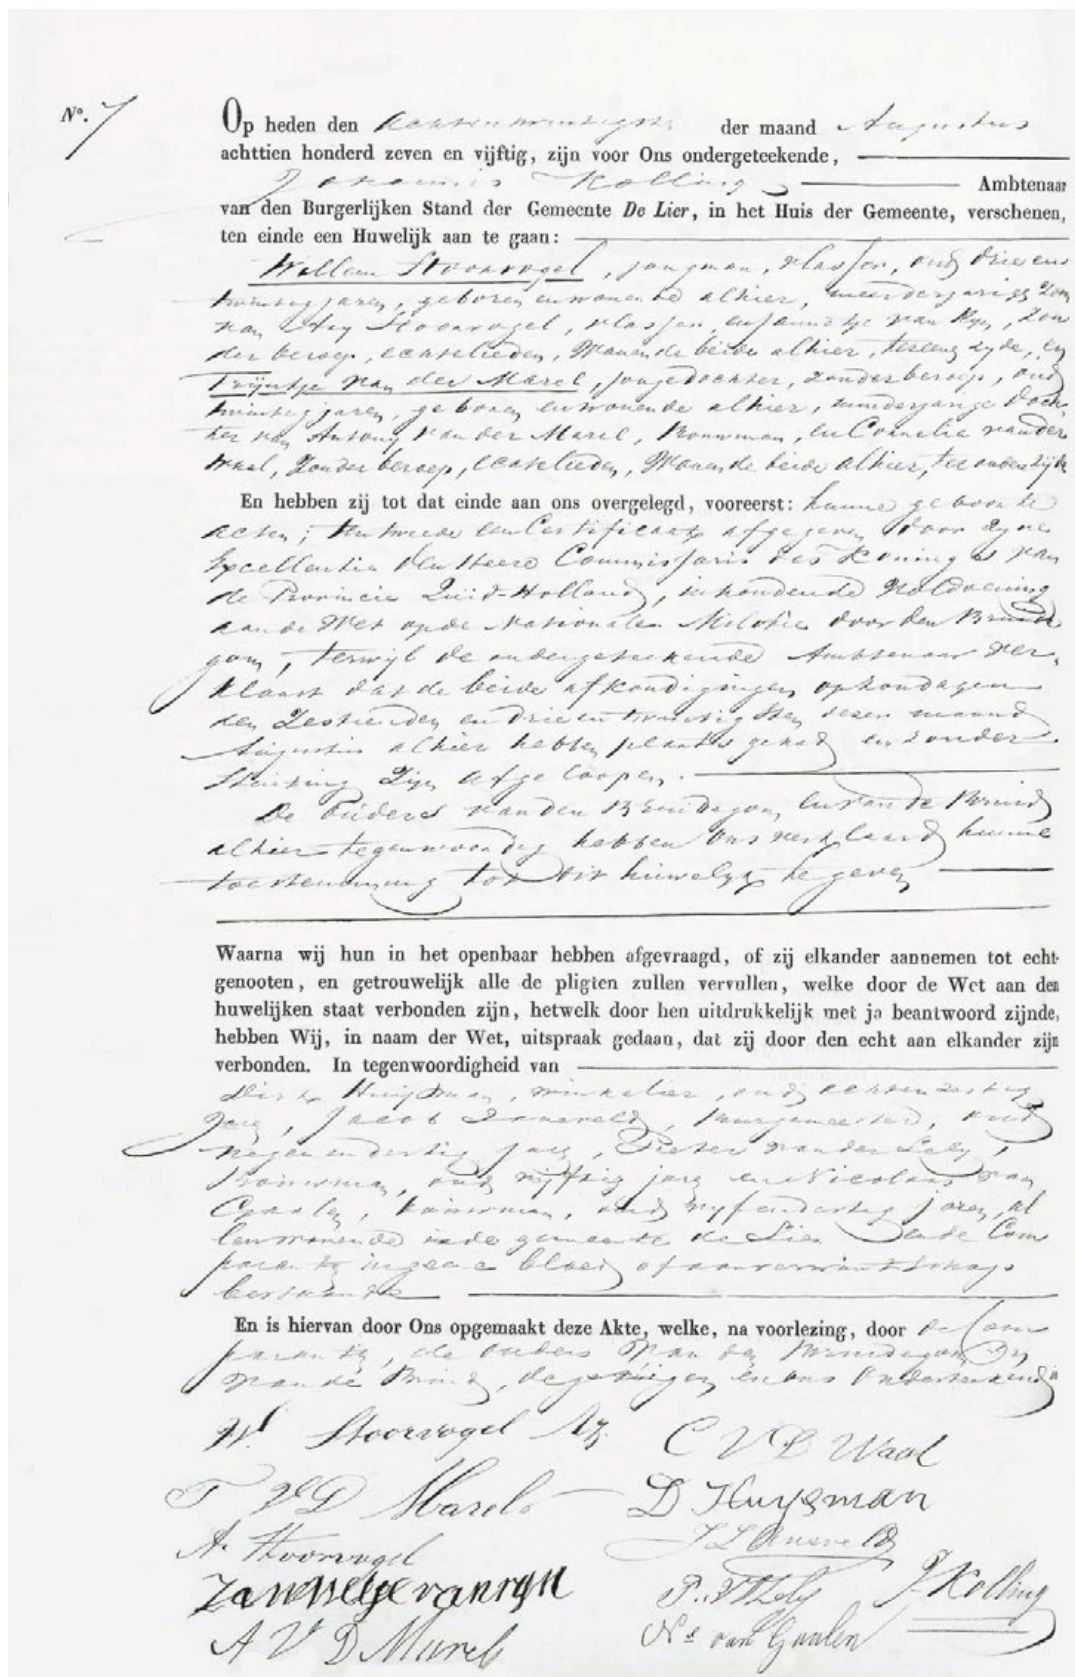 No. 7
Op heden den achtentwintigsten der maand Augustus
achttien honderd zeven en vijftig, zijn voor Ons ondergeteekende,
Johannis Kolling Ambtenaar
van den Burgerlijken Stand der Gemeente De Lier, in het Huis der Gemeente, verschenen,
ten einde een Huwelijk aan te gaan:
Willem Stoorvogel, jongman, vlasser, oud drie en
twintig jaren, geboren en wonende alhier, meerderjarige Zoon
van Ary Stoorvogel, vlasser, en Jannetje van Ryn, Zon
der beroep, echtelieden, Wonende beide alhier, ter eenre zyde, en
Trijntje van der Marel, Jongedochter, Zonder beroep, oud
twintig jaren, geboren en wonende alhier, minderjarige Doch
ter van Antony van der Marel, Bouwman, en Cornelia van der
Waal, Zonder beroep, echtelieden, Wonende beide alhier, ter andere zijde
En hebben zij tot dat einde aan ons overgelegd, vooreerst: hunne geboorte
acten; ten tweede een Certificaat afgegeven door Zyne
Excellentie den Heere Commissaris des Konings van
de Provincie Zuid-Holland, inhoudende Voldoening
aan de Wet op de Nationale Militie door den Bruide
gom, terwijl de ondergeteekende Ambtenaar ver
klaart dat de beide afkondigingen op Zondagen
den Zestienden en drie en twintigsten dezer maand
Augustus alhier hebben plaats gehad en zonder
Stuiting Zijn afgeloopen.
De Ouders van den Bruidegom en van de Bruid
alhier tegenwoordig hebben Ons verklaard hunne
toestemming tot dit huwelyk te geven
Waarna wij hun in het openbaar hebben afgevraagd, of zij elkander aannemen tot echt-
genooten, en getrouwelijk alle de pligten zullen vervullen, welke door de Wet aan den
huwelijken staat verbonden zijn, hetwelk door hen uitdrukkelijk met ja beantwoord zijnde,
hebben Wij, in naam der Wet, uitspraak gedaan, dat zij door den echt aan elkander zijn
verbonden. In tegenwoordigheid van
Dirk Huijsman, winkelier, oud achtenzestig
jaren, Jacob, Burgemeester, oud
negenendertig jaren, Pieter van der Lely,
Bouwman, oud vyftig jaren en Nicolaas van
Gaalen, bouwman, oud vyfendertig jaren, al
len wonende in de gemeente de Lier en de Com
paranten in geene bloed of aanverwantschap
bestaande
En is hiervan door Ons opgemaakt deze Akte, welke, na voorlezing, door de Com
paranten, de ouders van den Bruidegom en
van de Bruid, de getuigen en ons Onderteekend is
W Stoorvogel Az.
C V D Waal
T V D Marel
D Huysman
A Stoorvogel
Jannetje van ryn
P. V D Lely
J Kolling
A V D Marel
Ns van Gaalen